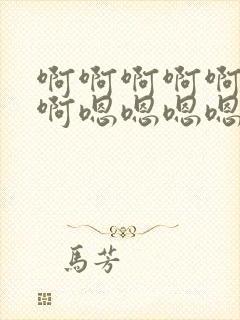 啊啊啊啊啊
啊嗯嗯嗯嗯
馬芳